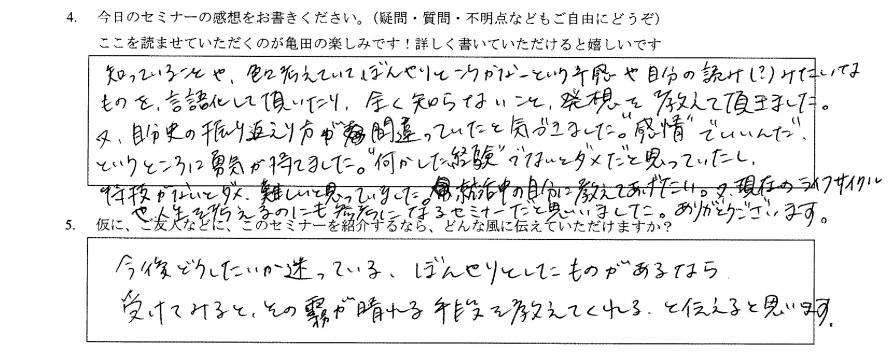 4. 今日のセミナーの感想をお書きください。（疑問・質問・不明点などもご自由にどうぞ）
ここを読ませていただくのが亀田の楽しみです！詳しく書いていただけると嬉しいです
知っていることや、色々考えていてぼんやりとこうかなーという予感や自分の読み(?)みたいな
ものを、言語化して頂いたり、全く知らないこと、発想を教えて頂きました。
又、自分史の振り返えり方が間違っていたと気づきました。"感情"でいいんだ、
というところに勇気が持てました。"何かした経験"でないとダメだと思っていたし、
特技がないとダメ、難しいと思っていました。就活中の自分に教えてあげたい。又、現在のライフサイクル
や、人生を考えるのにも参考になるセミナーだと思いました。ありがとうございます。
5. 仮に、ご友人などに、このセミナーを紹介するなら、どんな風に伝えていただけますか？
今後どうしたいか迷っている、ぼんやりとしたものがあるなら
受けてみると、その霧が晴れる手段を教えてくれる、と伝えると思います。